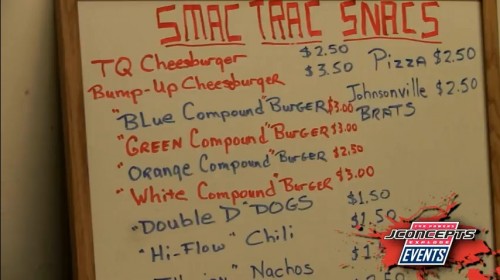 SMAC TRAC SNACS
TQ Cheesburger $2.50
Bump-Up Cheesburger $3.50
"BLue Compound" BURGER $3.00
"GREEN Compound" BURGER $3.00
"ORANGE Compound" BURGER $2.50
"White Compound" BURGER $3.00
"Double D" DOGS $1.50
"Hi-Flow" Chili $1.50
Nachos
Pizza $2.50
Johnsonville $2.50
BRATS
JCONCEPTS
EVENTS